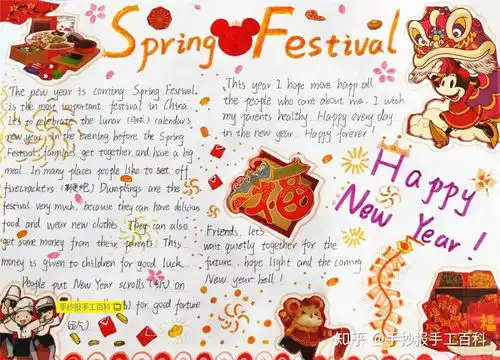 Spring Festival
The new year is coming Spring Festival
is the most important festival in China
It's to celebrate the lunar calendar's
new year, in the evening before the Spring
Festival, families get together and have a big
meal. In many places people like to set off
firecrackers. Dumplings are the
festival very much, because they can have delicious
food and wear new clothes. They can also
get some money from their parents. This
money is given to children for good luck.
People put New Year scrolls on
for good fortune
手抄报手工百科
This year I hope more happ all
the people who care about me. I wish
my parents healthy. Happy every day
in the new year. Happy forever!
福
Friends, let's
wait quietly together for the
future, hope light and the coming
New year bell!
Happy
New Year!
知乎 @手抄报手工百科